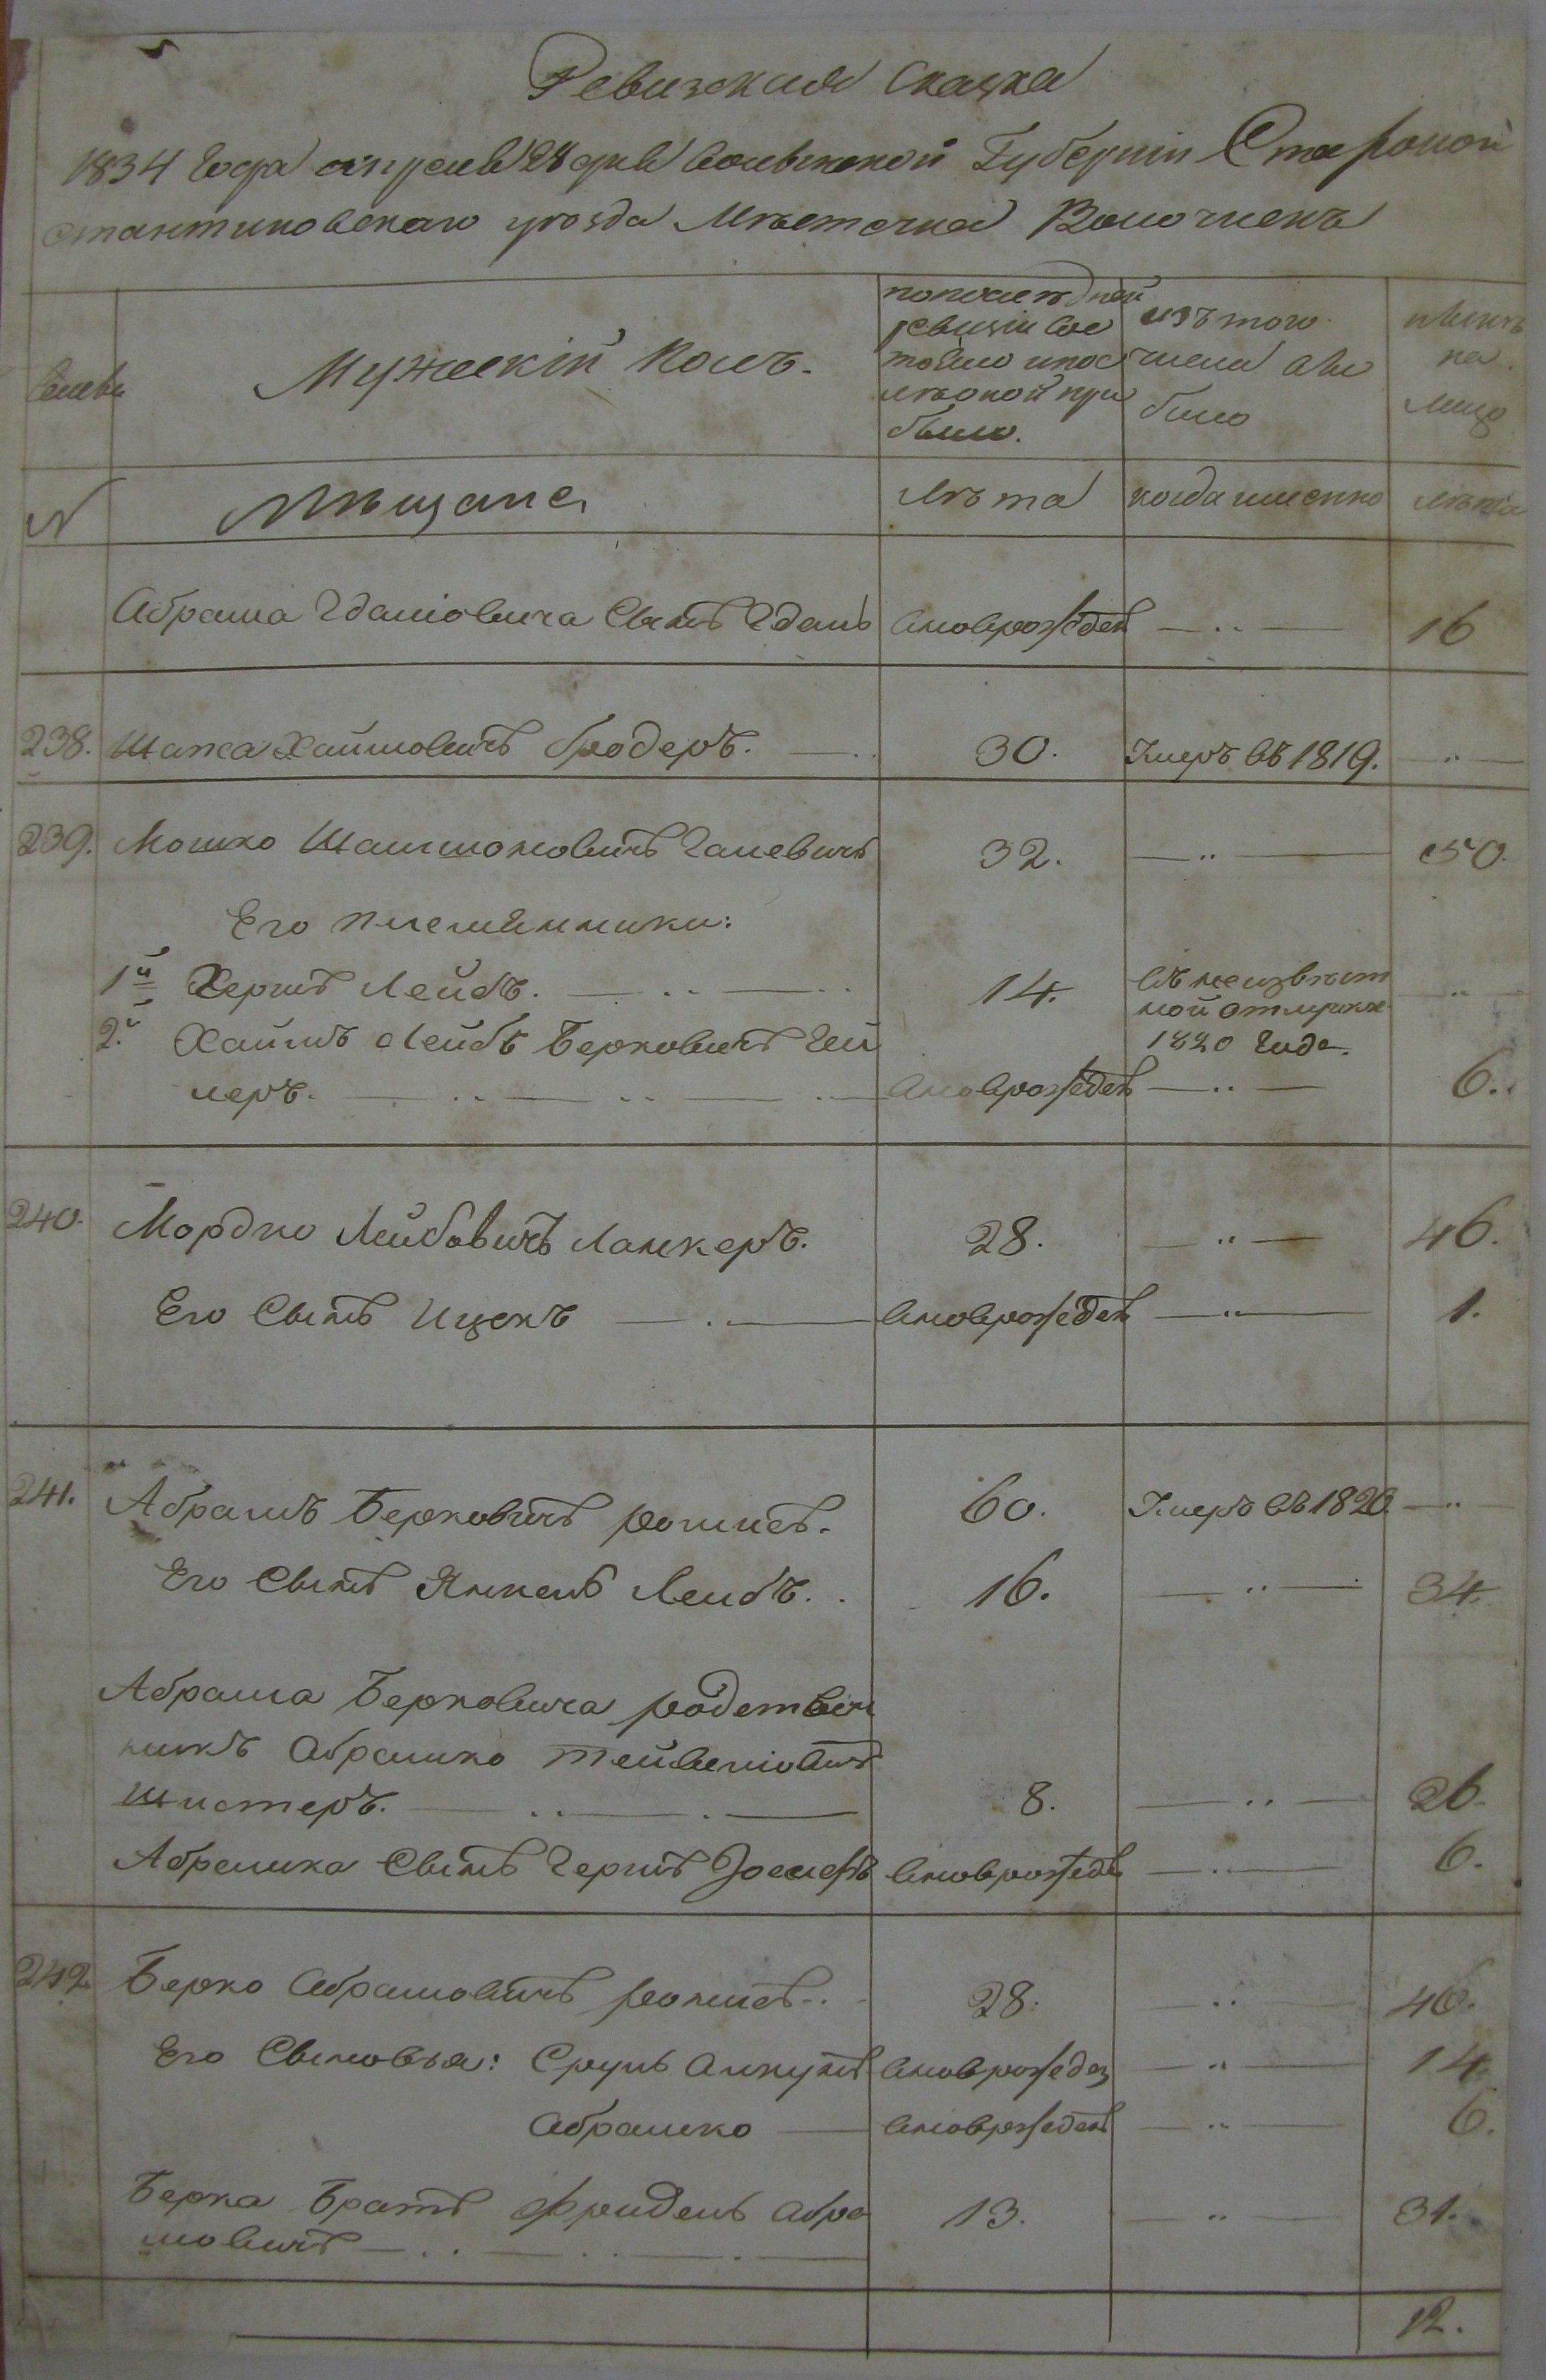 Ревизская Сказка
1834 года апреля 28 дня Волынской Губерніи Старокон
стантиновскаго уѣзда Мѣстечка Волочискъ
Семьи
Мужескій полъ.
по последней ревизіи состояло и после оной прибыло.
изъ того числа выбыло
нынѣ на лицо
№
Мѣщане
лѣта
когда именно
лѣта
Абрама Гдаліовича Сынъ Гдаль вновьрожденъ — 16
238. Шапса Хаимовичъ Бродеръ. 30. Умеръ въ 1819. —
239. Мошко Шлиомовичъ 32. — 50.
Его племянники:
1й Хершъ Лейбъ. 14. въ неизвѣст
ной отлучке
1820 года.
2й Хаимъ Лейбъ Берковичъ Гей
леръ. вновьрожденъ — 6.
240. Мордко Лейбовичъ Ланкеръ. 28. — 46.
Его Сынъ Ицекъ вновьрожденъ — 1.
241. Абрамъ Берковичъ 60. Умеръ въ 1820 —
Его Сынъ Янкель Лейбъ. 16. — 34.
Абрама Берковича родствен
никъ Абрамко Тейвеліовичъ
Шистеръ. 8. — 26.
Абрамка Сынъ Гершъ Іосифъ вновьрожденъ — 6.
242. Берко Абрамовичъ 28. — 46.
Его Сыновья: Сруль вновьрожден — 14.
Абрамко вновьрожденъ — 6.
Берка Братъ Фридель Абра
мовичъ 13. — 31.
12.